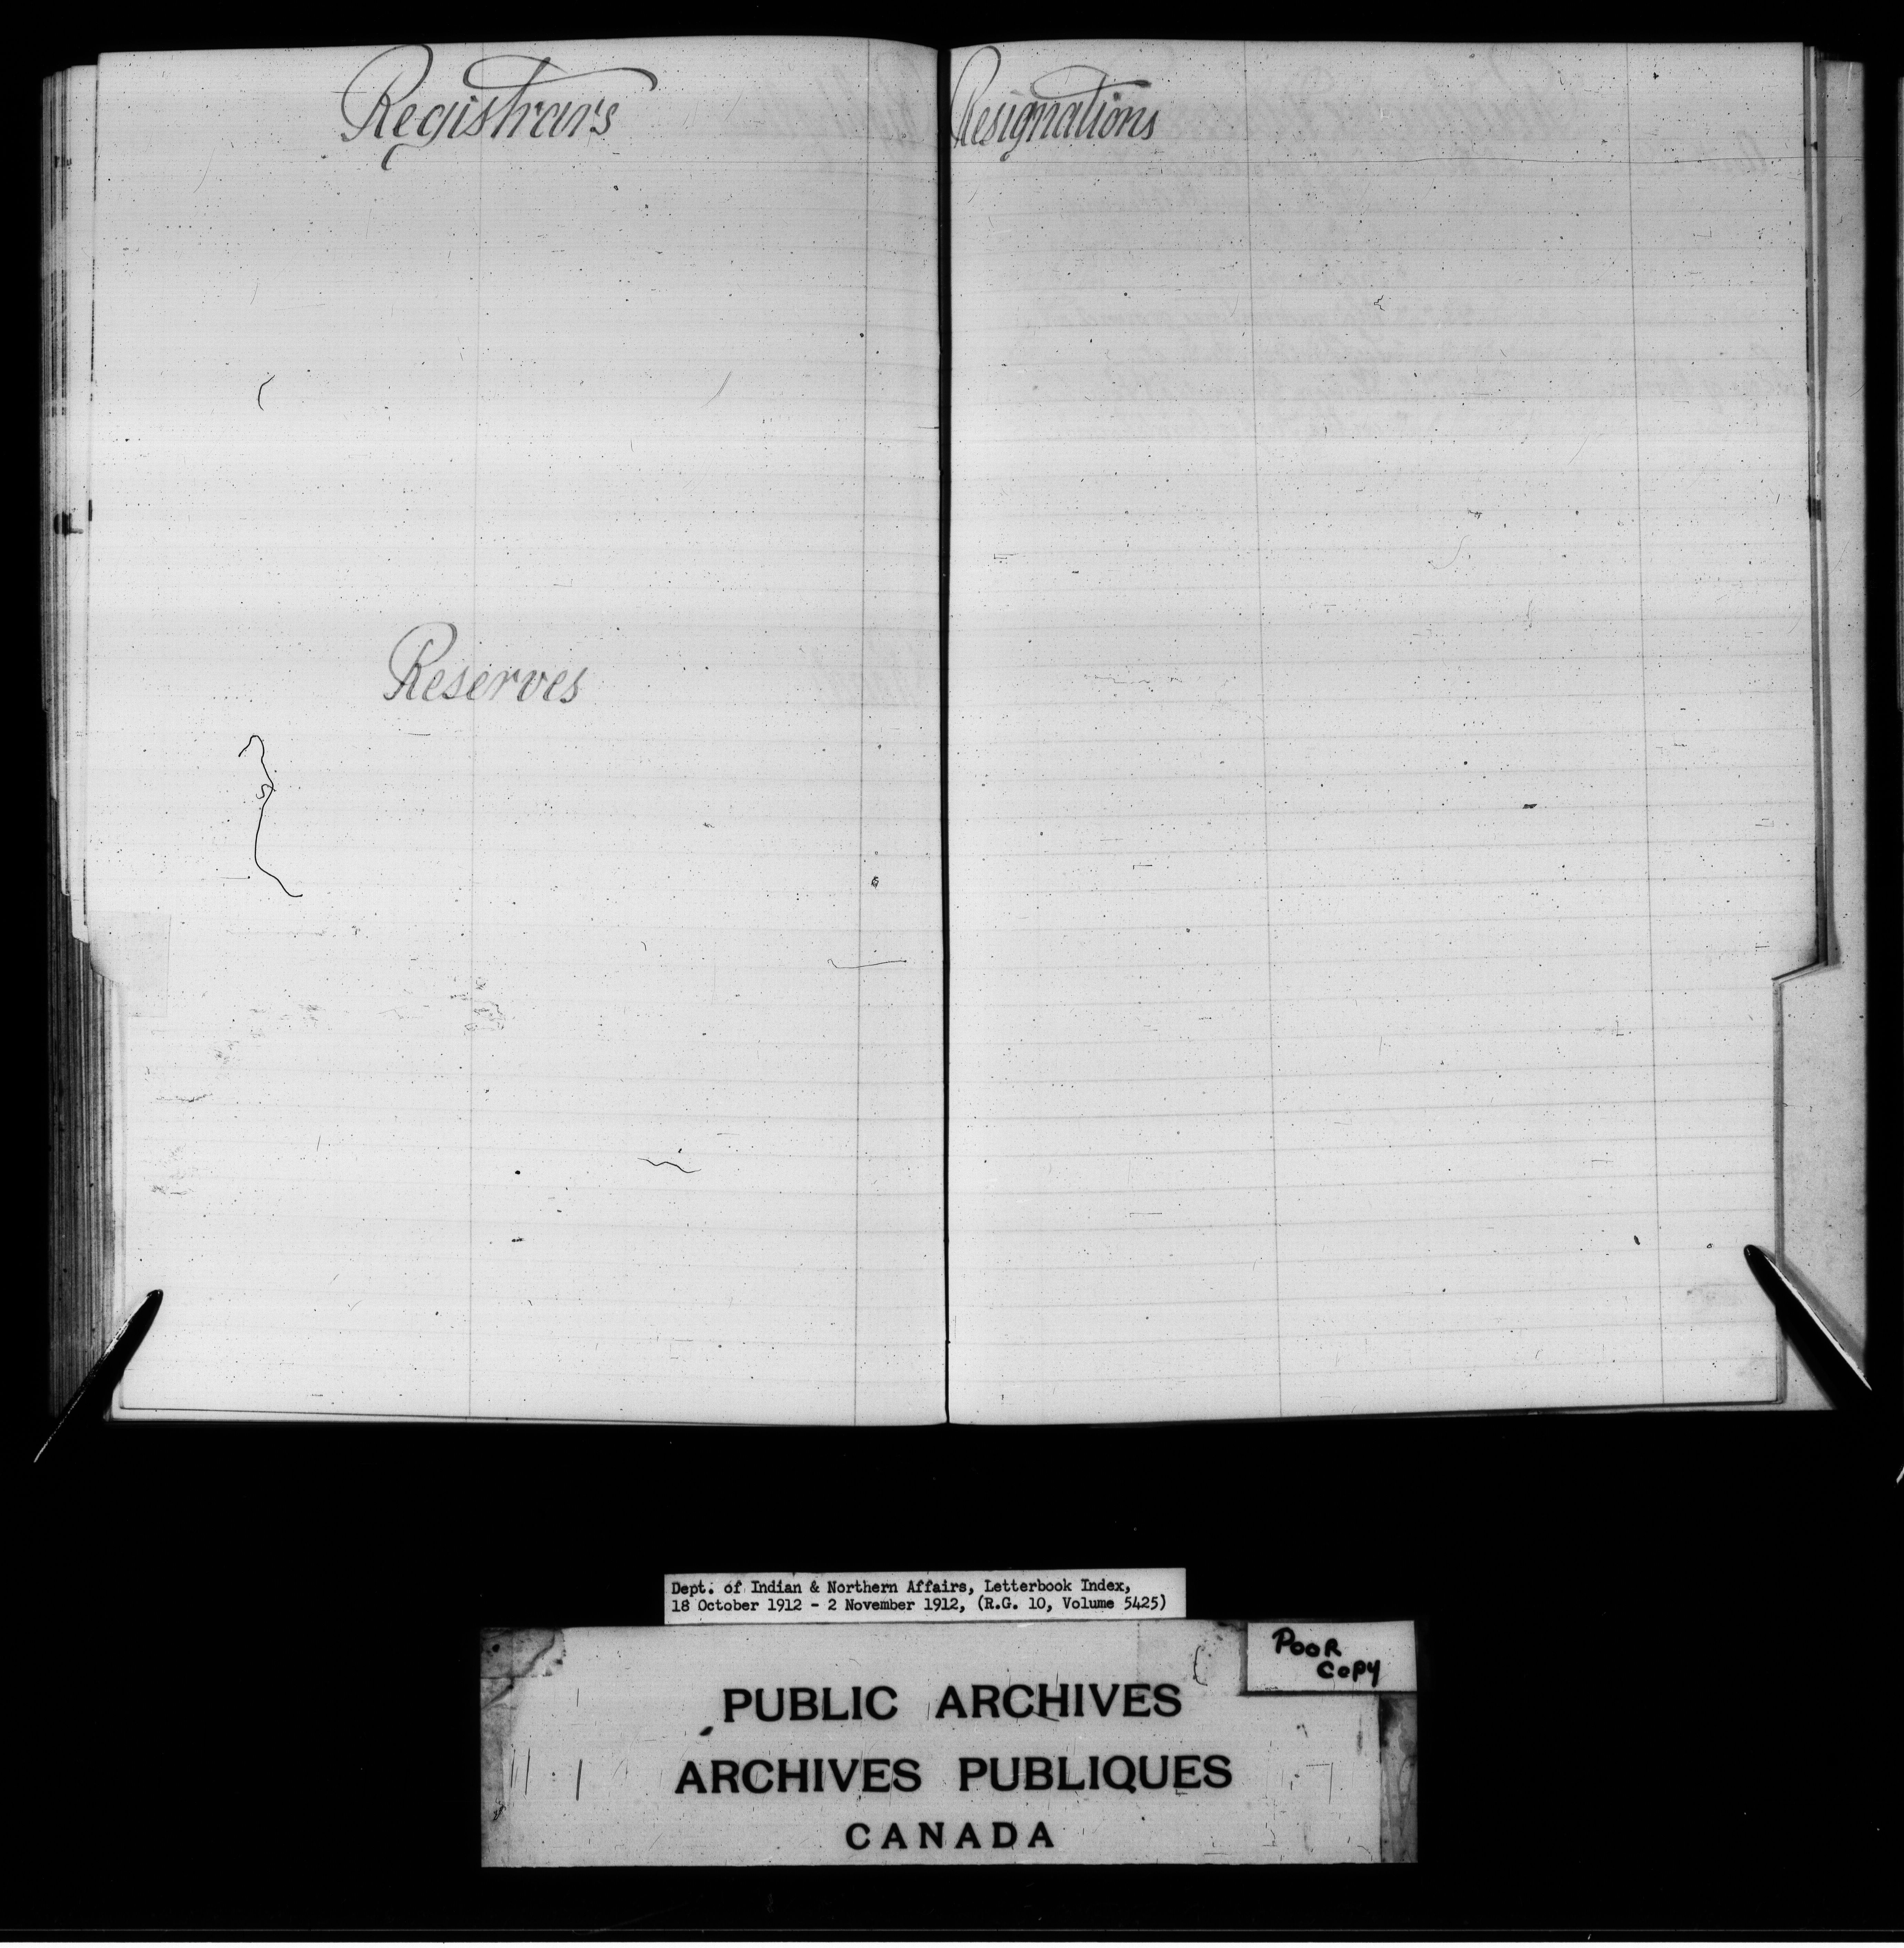 Registrars
Reserves
Resignations
Dept. of Indian & Northern Affairs, Letterbook Index,
18 October 1912 - 2 November 1912, (R.G. 10, Volume 5425)
POOR
COPY
PUBLIC ARCHIVES
ARCHIVES PUBLIQUES
CANADA